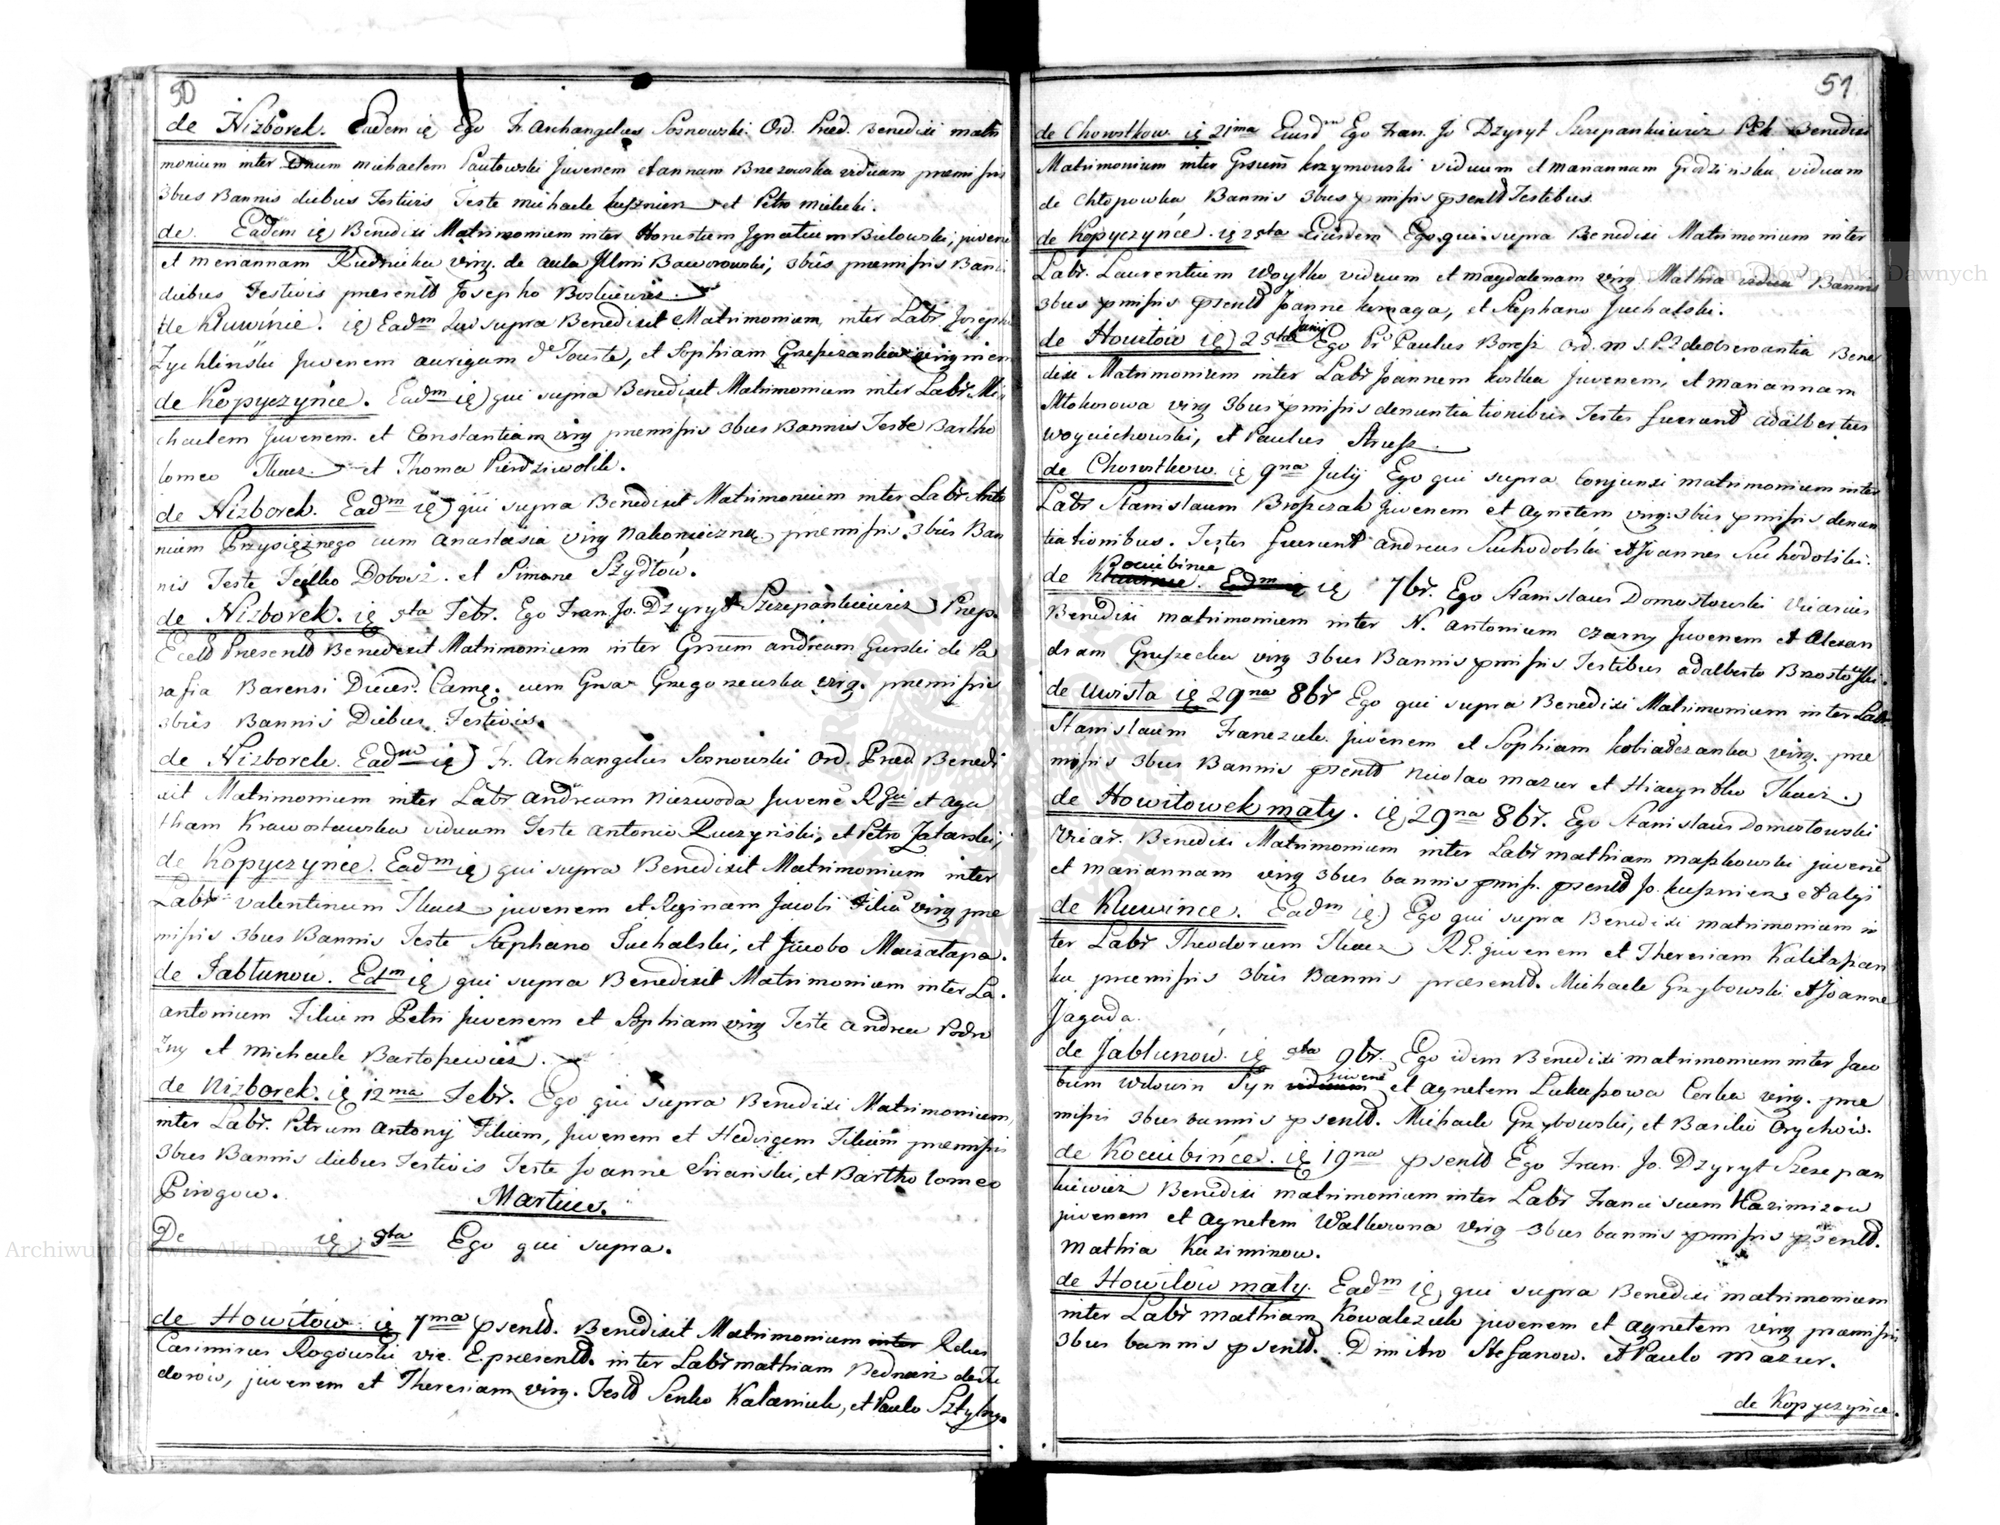 50
de Nizborek. Eadem ię Ego Fr. Archangelus Sosnowski Ord. Pred. Benedixi matri
monium inter Dnum Michaelem Pawłowski Juvenem et annam Brzezowska viduam premissis
3bus Bannis diebus Festivis Teste Michaele Kusznierz et Petro Mielecki.
de Eadem ię Benedixi Matrimonium inter Honestum Ignatium Bielowski, juvene
et meriannam Rudnicka virg. de aula Illmi Baworowski, 3bus premissis Banī
diebus Festivis presentb Josepho Boskiewicz.
de Kluwinie. ię) Eadm Qui supra Benedixit Matrimonium inter Labr Joseph
Zychliński Juvenem aurigam de Touste, et Sophiam virginem
de Kopyczyńce. Eadm ię) qui supra Benedixit Matrimonium inter Labr. Mi
chaelem Juvenem et Constantiam virg premissis 3bus Bannis Teste Bartho
lomeo Tkacz et Thoma Pierdziwolik.
de Nizborek. Eadm ię) qui supra Benedixit Matrimonium inter Labr Anto
nium Przysięznego cum Anastasia virg Nakonieczna premissis 3bus Ban
nis Teste Fedko Dobosz. et Simone Szydłów.
de Nizborek. ię 5ta Febr. Ego Fran. Jo. Dzyryt Szczepankiewicz Prep.
Eccld Presentb Benedixit Matrimonium inter Grsum andream Gurski de Pa
rafia Barensi Diœces. Camę. cum Gnsa Grzegorzewska virg. premissis
3bus Bannis Diebus Festivis.
de Nizborek. Eadm ię) Fr. Archangelus Sosnowski Ord. Pred. Benedi
xit Matrimonium inter Labr andream Niezwoda Juvene RGni et aga
tham Krawostawska viduam Teste Antonio Ruczynski, et Petro Jatarski,
de Kopyczyńce. Eadm ię) qui supra Benedixit Matrimonium inter
Labr Valentinum Tkacz juvenem et Reginam Jacobi Filia virg pre
missis 3bus Bannis Teste Stephano Suchalski, et Jacobo Maczałapa.
de Jabłunow. Edm ię) qui supra Benedixit Matrimonium inter La.
antonium Filium Petri juvenem et Sophiam virg Teste andrea Podro
zny et Michaele Bartoszewicz.
de Nizborek. ię 12ma Febr. Ego qui supra Benedixi Matrimonium
inter Labr. Petrum Antonij Filium, Juvenem et Hedvigem Filiam premissis
3bus Bannis diebus Festivis Teste Joanne Sirański, et Bartholomeo
Pirogow.
Martius.
De ię 5ta Ego qui supra.
de Howiłów ię 7ma psentb. Benedixit Matrimonium inter Rdus
Casimirus Rogowski vic. E. presentb. inter Labr mathiam Bednarz de Fe
dorow, juvenem et Theresiam virg. Testb Senko Kalaniuk, et Paulo
51
de Chorostkow ię 21ma Eiusdm Ego Fran. Jo Dzyryt Szczepankiewicz PEK Benedixi
Matrimonium inter Grsum Krzymowski viduum et Mariannam Grodzinska viduam
de Chłopowka Bannis 3bus pmissis psentb Testibus.
de Kopyczyńce ię 25ta Eiusdem Ego qui supra Benedixi Matrimonium inter
Labr. Laurentium Woytko viduum et Magdalenam virg Mathia vidua Bannis
3bus pmissis psentb Joanne Komaga, et Stephano Suchalski.
de Howiłów ię) 25ta Junij Ego Pr Paulus Boresz Ord. M S.P.F de observantia Bene
dixi Matrimonium inter Labr Joannem Kostka Juvenem, et Mariannam
Młokosowa virg 3bus pmissis denuntiationibus Testes fuerunt adalbertus
Woyciechowski, et Paulus Strusz.
de Chorostkow. ię 9na Julij Ego qui supra Conjunxi matrimonium inter
Labr Stanislaum Juvenem et agnetem virg. 3bus pmissis denun
tiationibus. Testes fuerunt andreas Suchodolski et Joannes Suchodolski.
de Kluwince Kociubince. Eadm ię ię 7br. Ego Stanislaus Domostowski Vicarius
Benedixi matrimonium inter N. Antonium Czarny Juvenem et Alexan
dram virg 3bus Bannis pmissis Testibus adalberto Brzostowski.
de Uwista ię 29na 8br Ego qui supra Benedixi Matrimonium inter Labr
Stanislaum Franczuk juvenem et Sophiam Kobiadczanka virg. pre
missis 3bus Bannis psentb Nicolao Mazur et Hiacyntho Tkacz.
de Howiłowek mały. ię 29na 8br. Ego Stanislaus Domostowski
Vicar. Benedixi Matrimonium inter Labr mathiam maszkowski juvenē
et Mariannam virg 3bus bannis pmiss. psentb Jo. Kusznierz et alys
de Kluwince. Eadm ię.) Ego qui supra Benedixi matrimonium in
ter Labr Theodorum Tkacz RG. juvenem et Theresiam Kaliłaszan
ka premissis 3bus Bannis præsentb. Michaele Grzybowski et Joanne
Jagoda.
de Jabłunow. ię 5ta 9br. Ego idem Benedixi matrimonium inter Jaco
bum Wdowin Syn viduum juvenē et agnetem Łukaszowa Corka virg. pre
missis 3bus bannis psentb. Michaele Grzybowski, et Basilio Orychow.
de Kociubińce. ię 19na psentb Ego Fran. Jo. Dzyryt Szczepan
kiewicz Benedixi matrimonium inter Labr Franciscum Kazimirow
juvenem et agnetem Walkowna virg 3bus bannis pmissis psentb.
Mathia Kazimirow.
de Howiłów mały. Eadm ię) qui supra Benedixi matrimonium
inter Labr mathiam Kowalczuk juvenem et agnetem virg premissis
3bus bannis psentb. Dmitro Stefanow. et Paulo Mazur.
de Kopyczyńce.